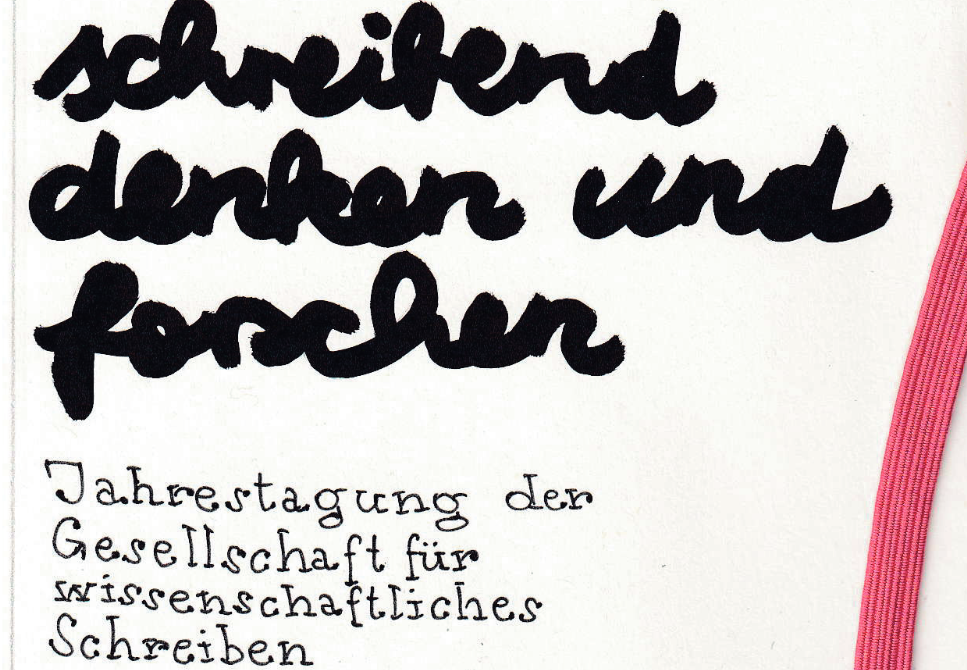 schreibend
denken und
forschen
Jahrestagung der
Gesellschaft für
wissenschaftliches
Schreiben